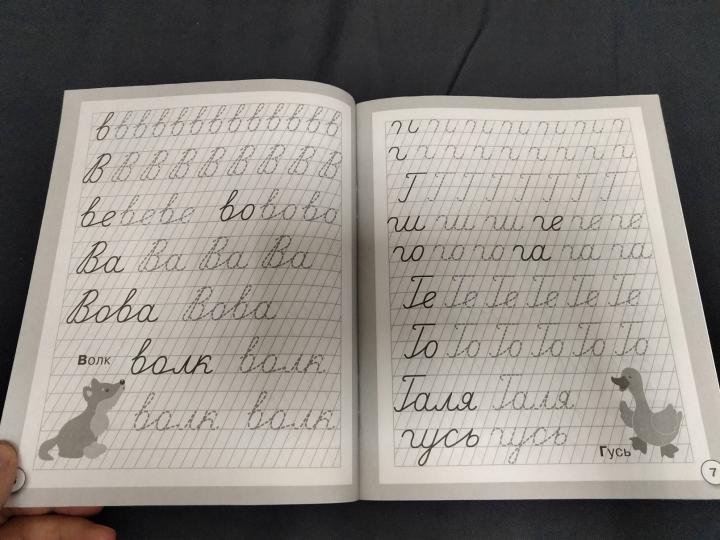 в в в в в в в в в в в в в
В В В В В В В В В
ве ве ве во во во
Ва Ва Ва Ва
Вова Вова
Волк волк волк
волк волк
г г г г г г г г г
Г Г Г Г Г Г Г
ги ги ги ге ге ге
го го го га га га
Ге Ге Ге Ге Ге Ге
Го Го Го Го Го Го
Галя Галя
гусь гусь
Гусь
7